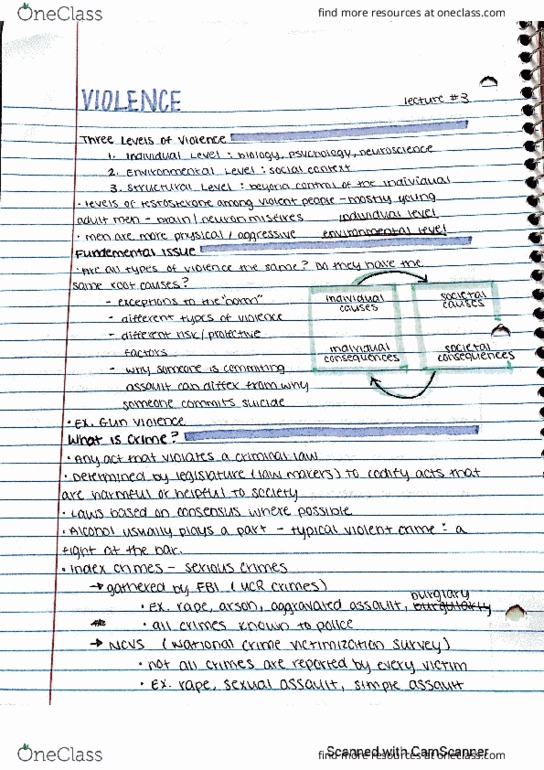 OneClass
find more resources at oneclass.com
VIOLENCE
lecture #3
Three Levels of Violence
1. Individual Level : biology, psychology, neuroscience
2. Environmental Level : social context
3. Structural Level : beyond control of the individual
• levels of testosterone among violent people - mostly young
adult men - brain / neuron misfires individual level
• men are more physical / aggressive environmental level
Fundemental Issue
• Are all types of violence the same? Do they have the
same root causes?
- exceptions to the "norm"
- different types of violence
- different risk / protective
factors
- why someone is commiting
assault can differ from why
someone commits suicide
individual causes
societal causes
individual consequences
societal consequences
• Ex. Gun violence
What is Crime?
• Any act that violates a criminal law
• Determined by legislature (law makers) to codify acts that
are harmful or helpful to society
• Laws based on consensus where possible
• Alcohol usually plays a part - typical violent crime : a
fight at the bar.
• Index crimes - serious crimes
→ gathered by FBI (UCR crimes)
• Ex. rape, arson, aggravated assault, burglary
• all crimes known to police
→ NCVS (National crime victimization survey)
• not all crimes are reported by every victim
• Ex. rape, sexual assault, simple assault
Scanned with CamScanner
OneClass
find more resources at oneclass.com